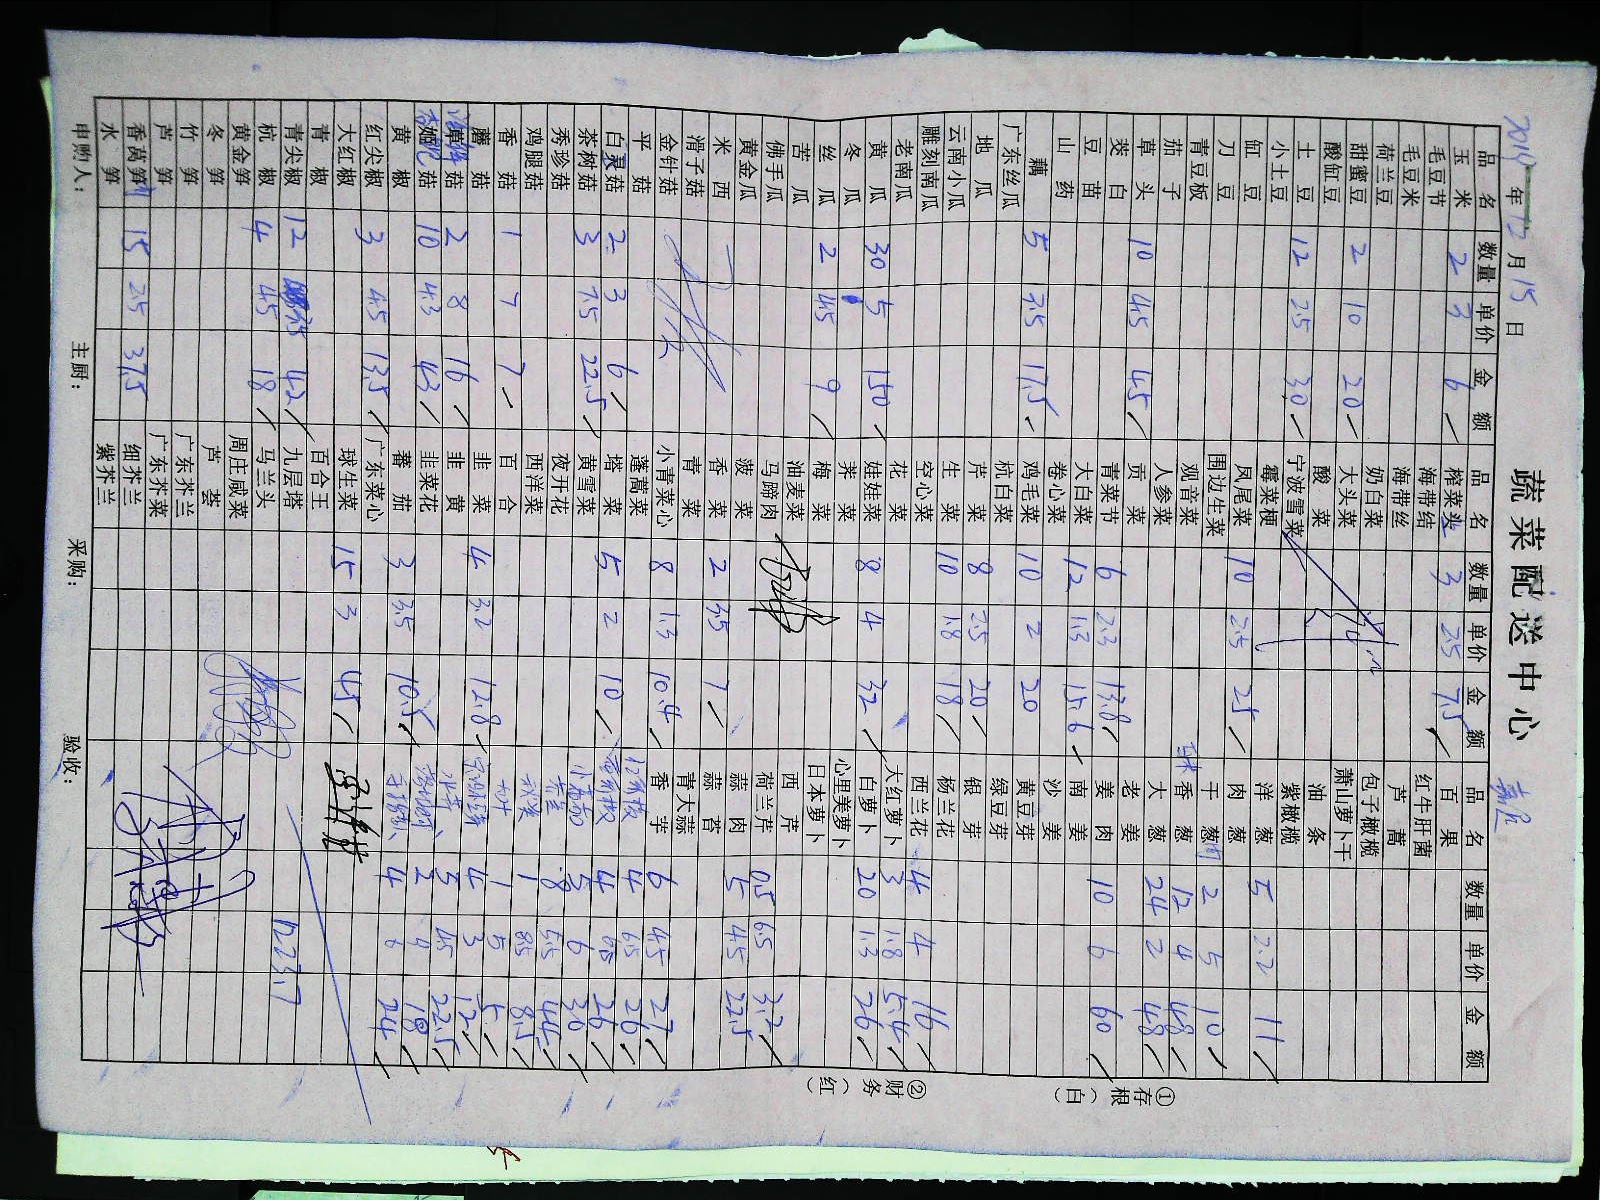 蔬菜配送中心
2019年12月15日
品名 数量 单价 金额 品名 数量 单价 金额 品名 数量 单价 金额
玉米 2 3 6 榨菜头 3 2.5 7.5 百果
毛豆节 海带结 红牛肝菌
毛豆米 海带丝 芦蒿
荷兰豆 奶白菜 包子橄榄
甜蜜豆 2 10 20 大头菜 萧山萝卜干
酸缸豆 酸菜 油条
土豆 12 2.5 30 宁波雪菜 紫橄榄
小土豆 霉菜梗 洋葱 5 2.2 11
缸豆 凤尾菜 10 2.5 25 肉葱
刀豆 围边生菜 干葱肉 2 5 10
青豆板 观音菜 香葱 12 4 48
茄子 人参菜 大葱 24 2 48
草头 10 4.5 45 贡菜 老姜
茭白 青菜节 6 2.3 13.8 姜肉 10 6 60
豆苗 大白菜 12 1.3 15.6 南姜
山药 卷心菜 沙姜
藕 5 3.5 17.5 鸡毛菜 10 2 20 黄豆芽
广东丝瓜 杭白菜 绿豆芽
地瓜 芹菜 8 2.5 20 银芽
云南小瓜 生菜 10 1.8 18 杨兰花
雕刻南瓜 空心菜 西兰花 4 4 16
老南瓜 花菜 大红萝卜 3 1.8 5.4
黄瓜 30 5 150 娃娃菜 8 4 32 白萝卜 20 1.3 26
冬瓜 荠菜 心里美萝卜
丝瓜 2 4.5 9 梅菜 日本萝卜
苦瓜 油麦菜 西芹
佛手瓜 马蹄肉 荷兰芹 0.5 6.5 3.2
黄金瓜 菠菜 蒜肉 5 4.5 22.5
米西 香菜 2 3.5 7 蒜苔
滑子菇 青菜 青大蒜
金针菇 小青菜心 8 1.3 10.4 香芋 6 4.5 27
平菇 蓬蒿菜 红尖椒 4 6.5 26
白灵菇 2 3 6 塔菜 5 2 10 黄尖椒 4 6.5 26
茶树菇 3 7.5 22.5 黄雪菜 小葫芦 5 6 30
秀珍菇 夜开花 8 5.5 44
鸡腿菇 西洋菜 1 8.5 8.5
香菇 1 7 7 百合 1 5 5
蘑菇 韭菜 4 3.2 12.8 4 3 12
草菇 2 8 16 韭黄 水芹 5 4.5 22.5
姬菇 10 4.3 43 韭菜花 2 9 18
黄椒 蕃茄 3 3.5 10.5 4 6 24
红尖椒 3 4.5 13.5 广东菜心
大红椒 球生菜 15 3 45
青椒 百合王
青尖椒 12 3.5 42 九层塔
杭椒 4 4.5 18 马兰头 1223.7
黄金笋 周庄咸菜
冬笋 芦荟
竹笋 广东芥兰
芦笋 广东芥菜
香莴笋 15 2.5 37.5 细芥兰
水笋 紫芥兰
申购人： 主厨： 采购： 验收：
①存根（白）
②财务（红）